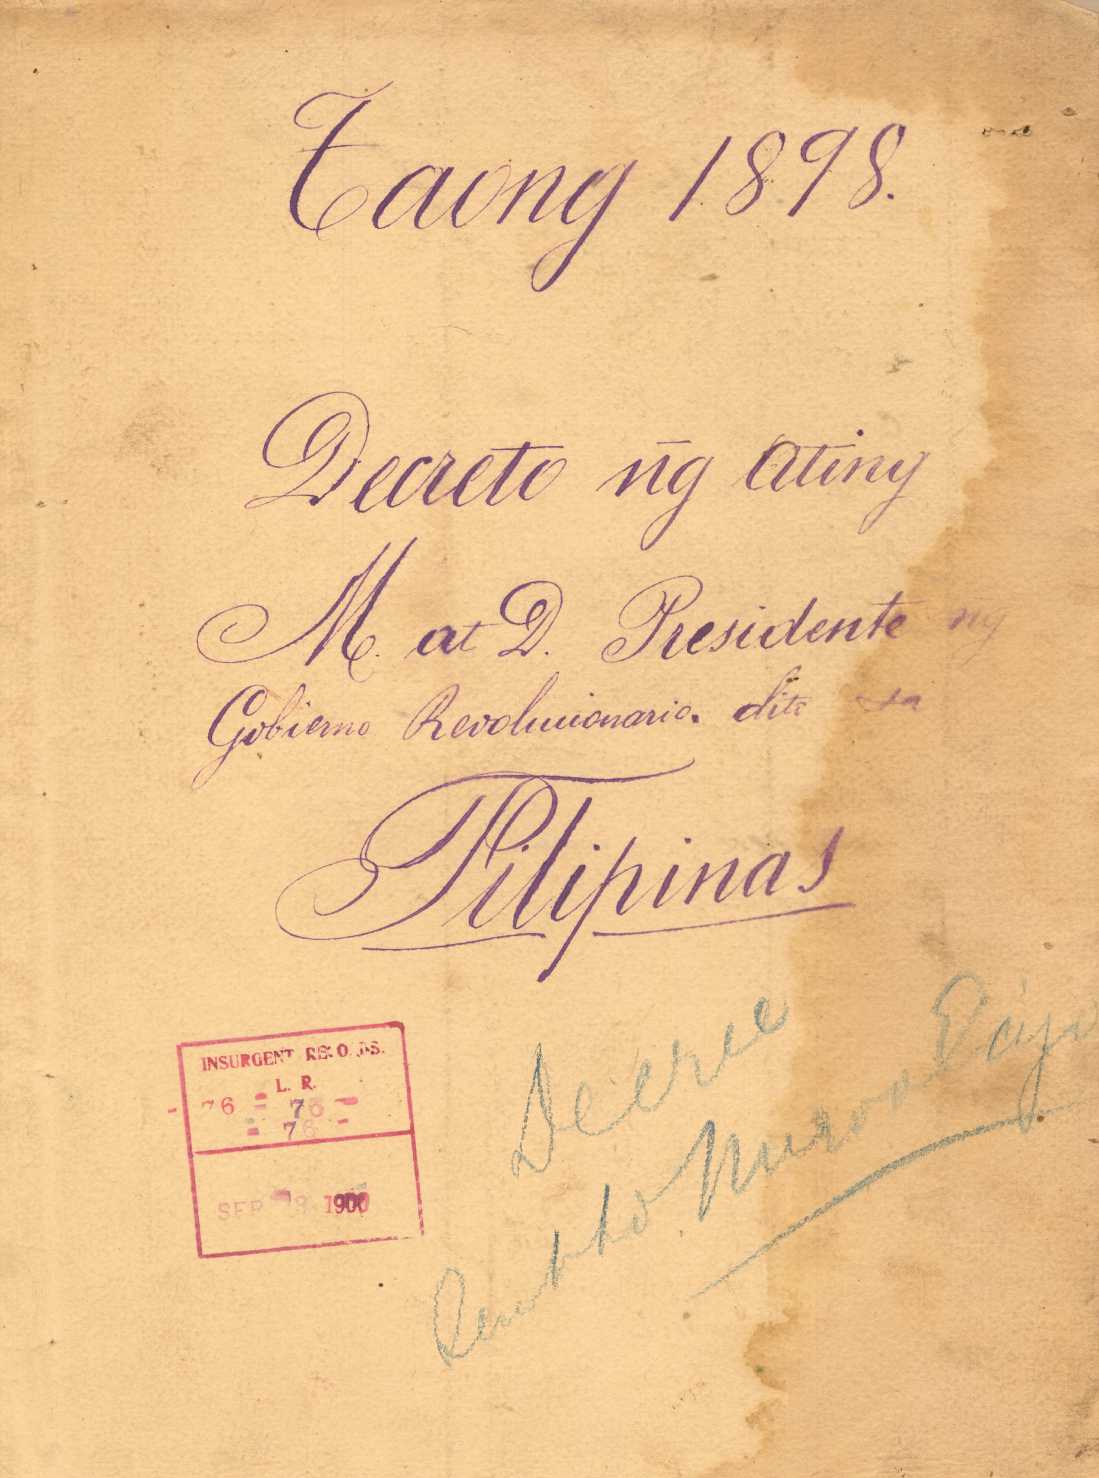 Taong 1898.
Decreto n̄g ating
M. at D. Presidente ng
Gobierno Revolucionario. dito sa
Filipinas
INSURGENT RECORDS.
L. R.
76 - 76 -
- 76 -
SEP 1900
Decree